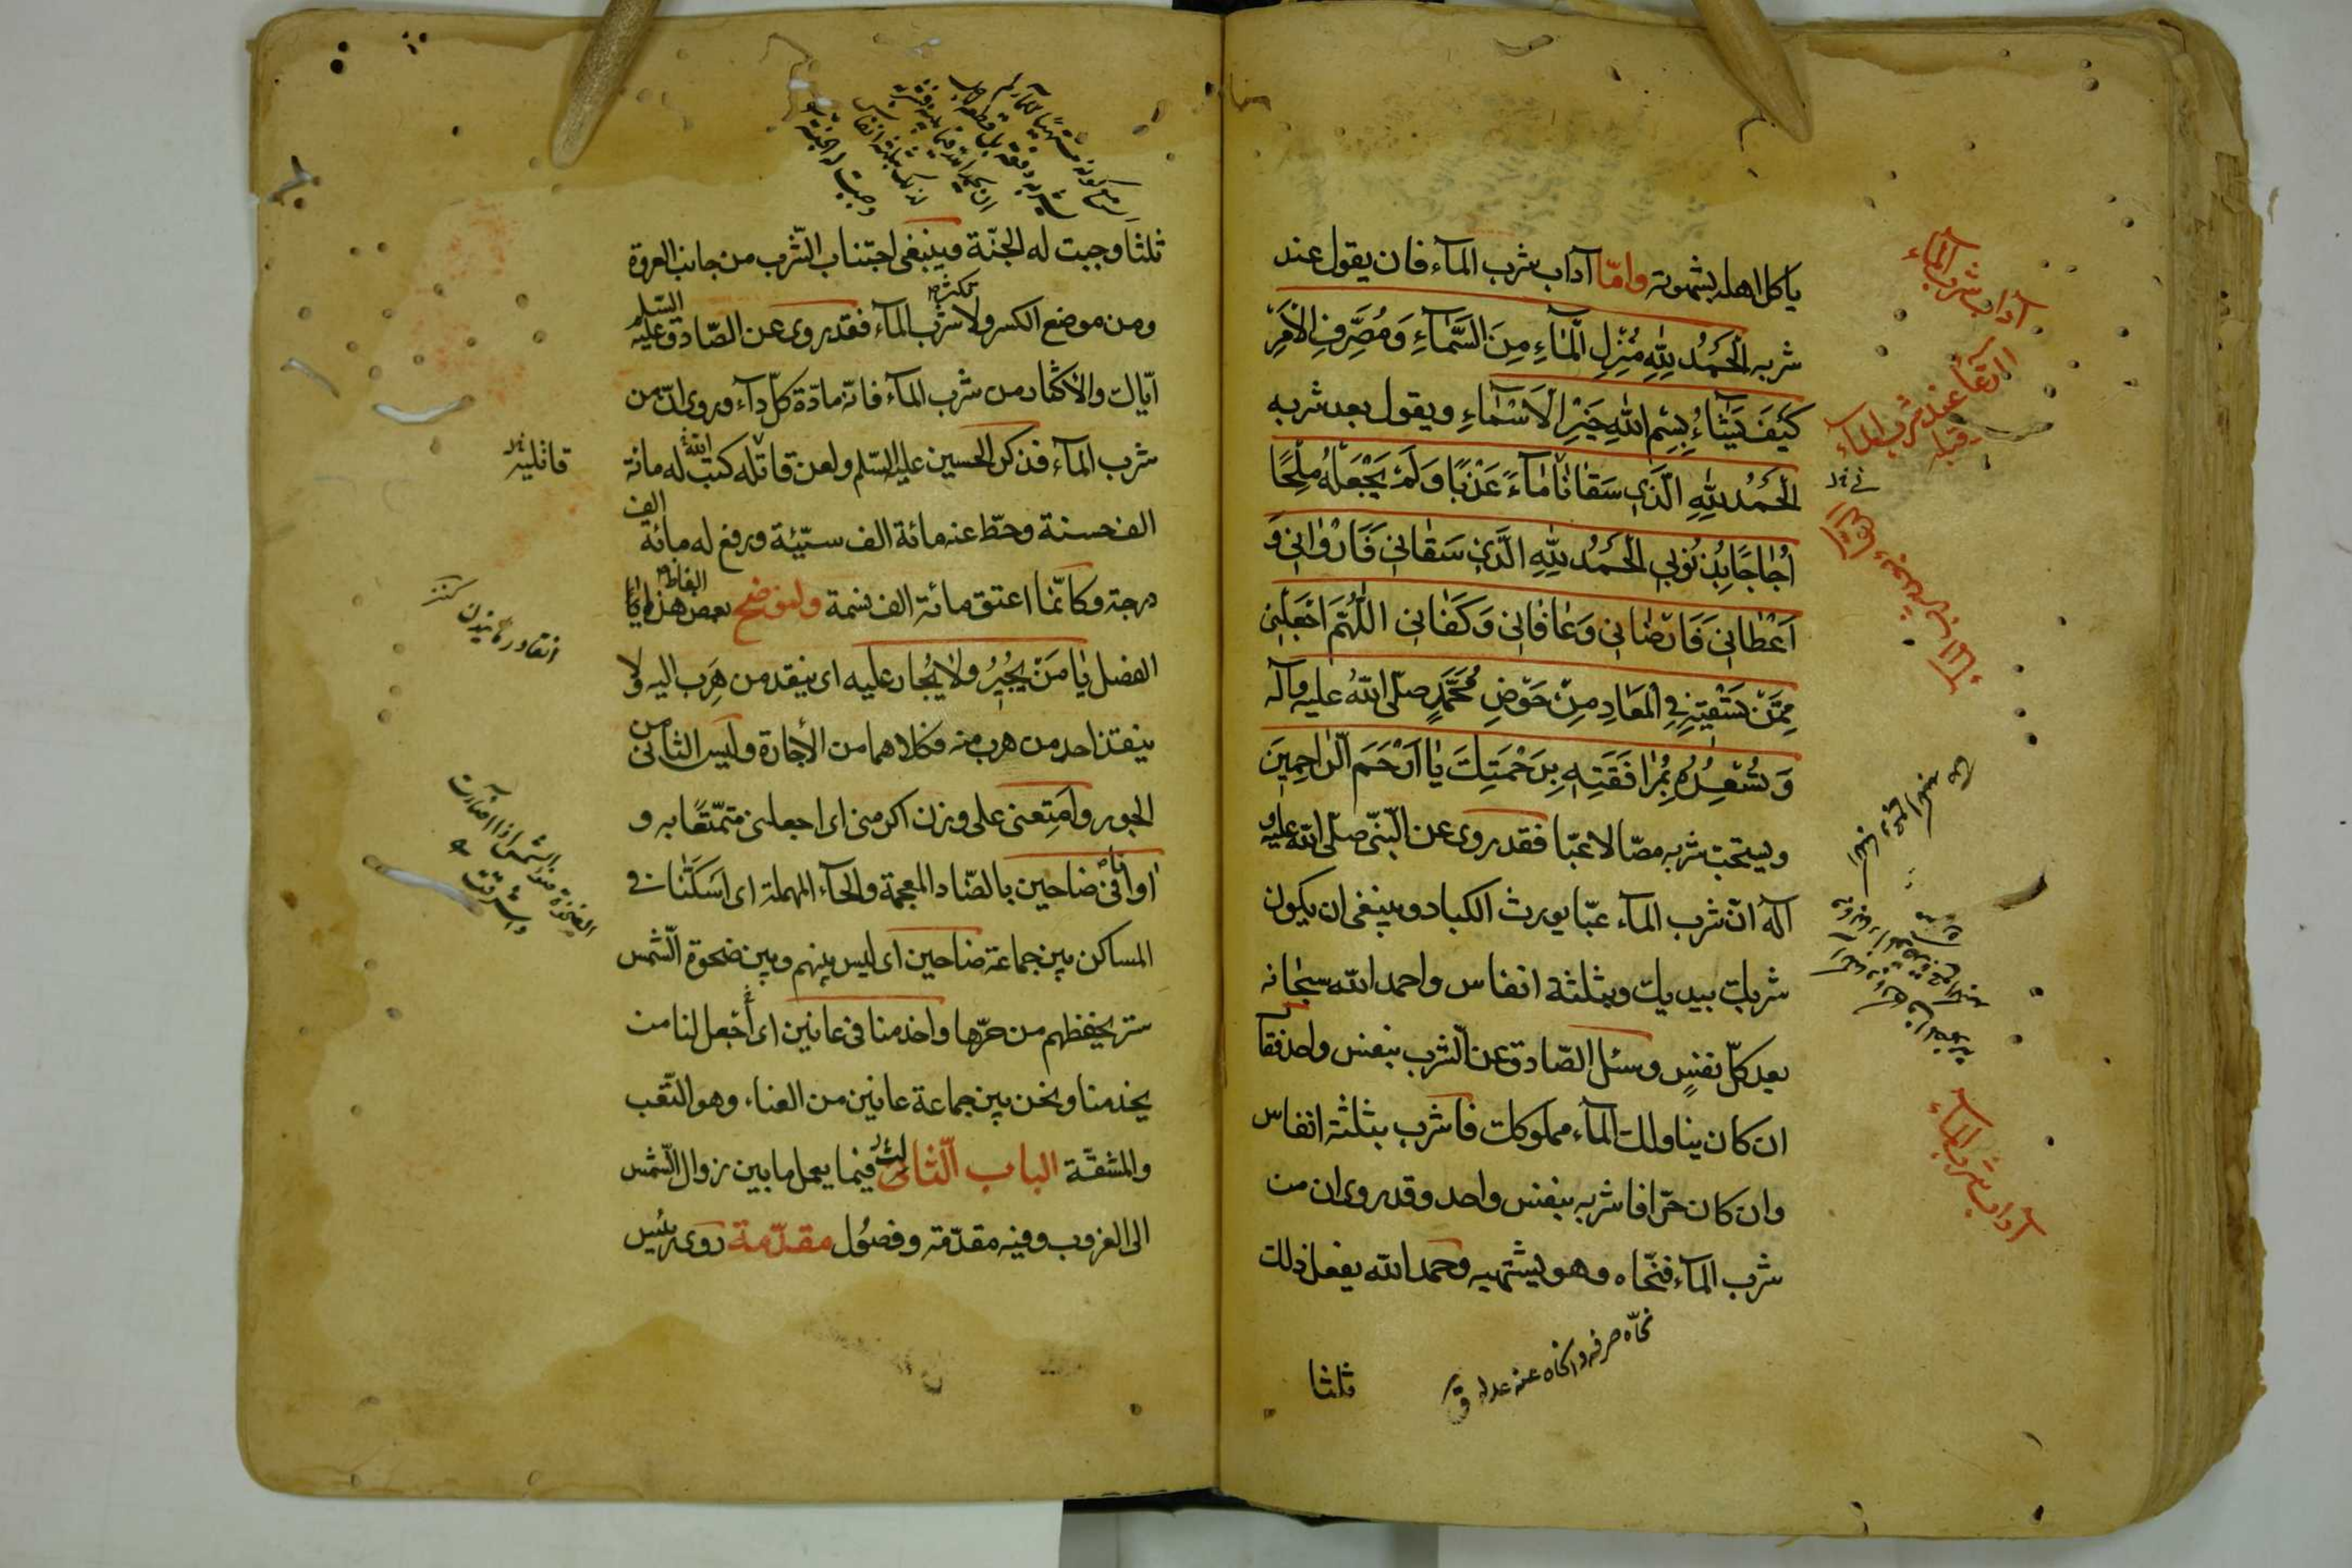 ياكل اهله بشهوته وامّا آداب شرب المآء فان يقول عند
شربه اَلْحَمْدُ لِلّٰهِ مُنْزِلِ الْمَآءِ مِنَ السَّمَآءِ وَمُصَرِّفِ الْاَمْرِ
كَيْفَ يَشَآءُ بِسْمِ اللّٰهِ خَيْرِ الْاَسْمَاءِ ويقول بعد شربه
اَلْحَمْدُ لِلّٰهِ الَّذِي سَقَانَا مَآءً عَذْبًا وَلَمْ يَجْعَلْهُ مِلْحًا
اُجَاجًا بِذُنُوبِي اَلْحَمْدُ لِلّٰهِ الَّذِي سَقَانِي فَاَرْوَانِي وَ
اَعْطَانِي فَاَرْضَانِي وَعَافَانِي وَكَفَانِي اَللّٰهُمَّ اجْعَلْنِي
مِمَّنْ تَسْقِيهِ فِي الْمَعَادِ مِنْ حَوْضِ مُحَمَّدٍ صلّى اللّٰهُ عليه وآله
وَتُسْعِدُهُ بِمُرَافَقَتِهِ بِرَحْمَتِكَ يَا اَرْحَمَ الرَّاحِمِينَ
ويستحبّ شربه مصّا لا عبّا فقد روى عن النّبىّ صلّى اللّه عليه و
آله انّ شرب المآء عبّا يورث الكباد وينبغى ان يكون
شربك بيديك وبثلثة انفاس واحمد اللّه سبحانه
بعد كلّ نفسٍ وسئل الصّادق عن الشرب بنفس واحد فقال
ان كان يناولك المآء مملوكك فاشرب بثلثة انفاس
وان كان حرّا فاشربه بنفس واحد وقد روى ان من
شرب المآء فنحّاه وهو يشتهيه وحمد اللّه يفعل ذلك
نحّاه صرفه وانحاه عنه عدله ق
ثلثا
آداب شرب المآء
الدعآء عند شرب المآء
قبله
آداب شرب المآء
ثلثا وجبت له الجنّة وينبغى اجتناب الشّرب من جانب العروة
ومن موضع الكسر ولا تكثر شرب المآء فقد روى عن الصّادق عليه السّلم
ايّاك والاكثار من شرب المآء فانّه مادّة كلّ دآء وروى انّ من
شرب المآء فذكر الحسين عليه السّلم ولعن قاتله كتب اللّه له مائة
الف حسنة وحطّ عنه مائة الف سيّئة ورفع له مائة الف
درجة وكانّما اعتق مائة الف نسمة ولنوضح بعض الفاظ هذا
الفصل يَا مَنْ يُجِيرُ وَلَا يُجَارُ عليه اى ينقذ من هَرَب اليه ولا
ينقذ احد من هرب منه وكلاهما من الأجارة وليس الثانى من
الجور وامتِعنى على وزن اكرمنى اى اجعلنى متمتّعًا به و
ضاحين بالضّاد المعجمة والحآء المهملة اى اسكنّا فى
المساكن بين جماعة ضاحين اى ليس بينهم وبين ضحوة الشّمس
ستر يحفظهم من حرّها واخدمنا فى عانين اى أجعل لنا من
يخدمنا ونحن بين جماعة عانين من العناء وهو التّعب
والمشقّة الباب الثالث فيما يعمل ما بين زوال الشّمس
الى الغروب وفيه مقدّمة وفصُول مقدّمة روى رئيس
قاتليه
انقاد رهانيدن كنز
الشمس اذا اضاءت
واشرقت